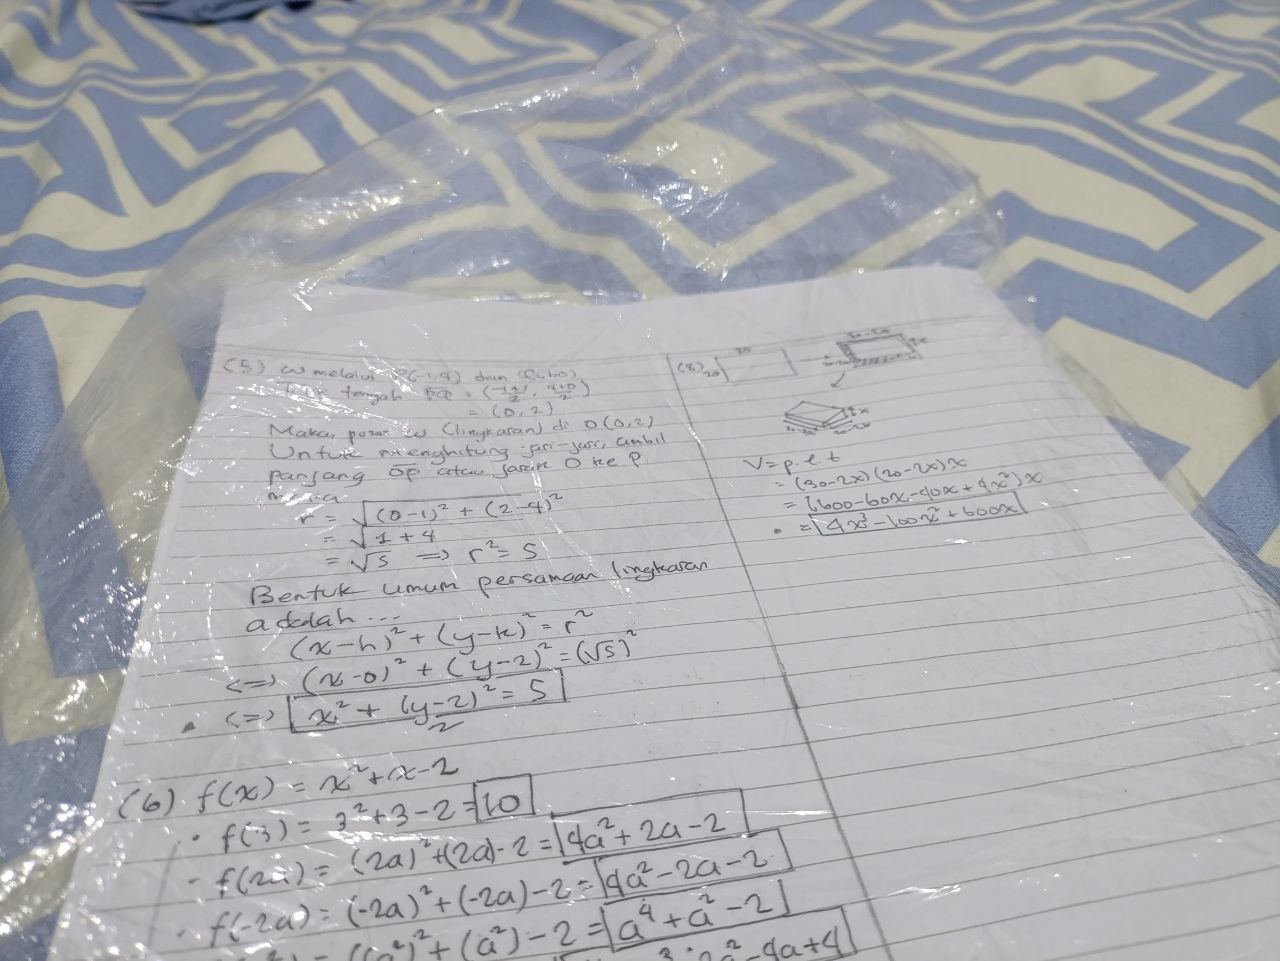 (5) ω melalui P(-1,4) dan Q(1,0)
Titik tengah PQ = (-1+1/2, 4+0/2)
= (0, 2)
Maka, pusat ω (lingkaran) di O(0,2)
Untuk menghitung jari-jari, ambil
panjang OP atau jarak O ke P
maka
r = √(0-1)² + (2-4)²
= √1 + 4
= √5 => r² = 5
Bentuk umum persamaan lingkaran
adalah...
(x-h)² + (y-k)² = r²
<=> (x-0)² + (y-2)² = (√5)²
<=> x² + (y-2)² = 5
(6) f(x) = x²+x-2
• f(3) = 3²+3-2 = 10
- f(2a) = (2a)²+(2a)-2 = 4a²+2a-2
• f(-2a) = (-2a)²+(-2a)-2 = 4a²-2a-2
(a²)²+(a²)-2 = a⁴+a²-2
-4a+4
(8) 20
30
30-2x
x
V = p.l.t
= (30-2x)(20-2x)x
= (600-60x-40x+4x²)x
• = 4x³-100x²+600x